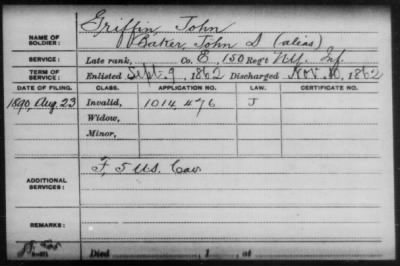 Griffin, John
NAME OF SOLDIER: Baker, John D (alias)
SERVICE: Late rank, Co. E, 150 Reg't N.Y. Inf.
TERM OF SERVICE: Enlisted Sept. 9, 1862 Discharged Nov. 10, 1862
DATE OF FILING. CLASS. APPLICATION NO. LAW. CERTIFICATE NO.
1890, Aug. 23 Invalid, 1014,476 J
Widow,
Minor,
ADDITIONAL SERVICES: F, 5 U.S. Cav
REMARKS:
Died , 1 , at